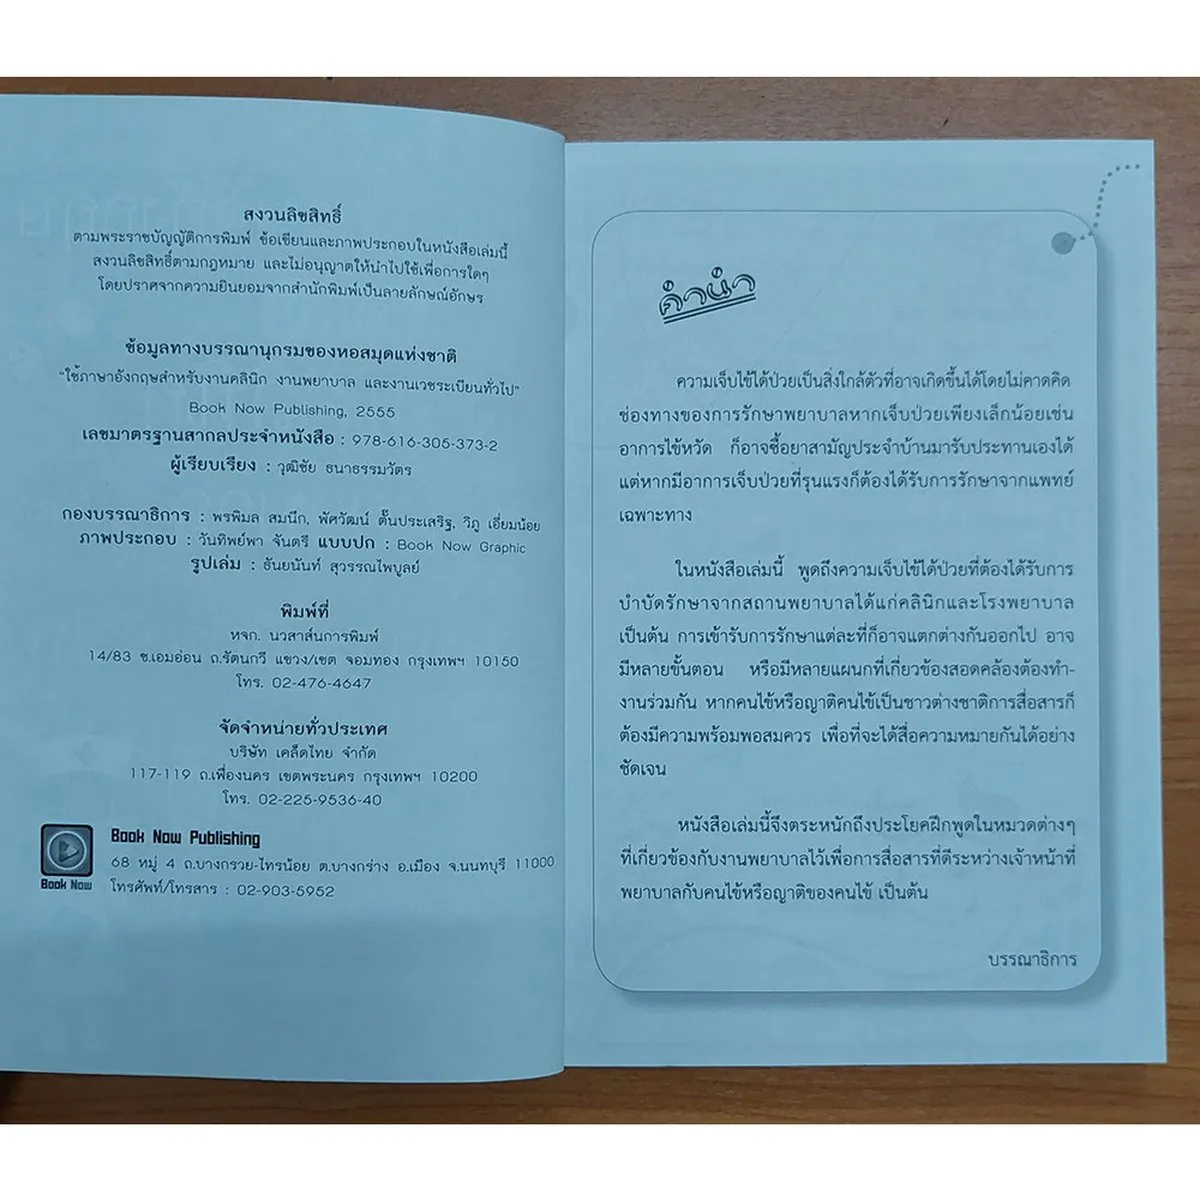 สงวนลิขสิทธิ์
ตามพระราชบัญญัติการพิมพ์ ข้อเขียนและภาพประกอบในหนังสือเล่มนี้
สงวนลิขสิทธิ์ตามกฎหมาย และไม่อนุญาตให้นำไปใช้เพื่อการใดๆ
โดยปราศจากความยินยอมจากสำนักพิมพ์เป็นลายลักษณ์อักษร
ข้อมูลทางบรรณานุกรมของหอสมุดแห่งชาติ
"ใช้ภาษาอังกฤษสำหรับงานคลินิก งานพยาบาล และงานเวชระเบียนทั่วไป"
Book Now Publishing, 2555
เลขมาตรฐานสากลประจำหนังสือ : 978-616-305-373-2
ผู้เรียบเรียง : วุฒิชัย ธนาธรรมวัตร
กองบรรณาธิการ : พรพิมล สมนึก, พัศวัฒน์ ตั๊นประเสริฐ, วิภู เอี่ยมน้อย
ภาพประกอบ : วันทิพย์พา จันตรี แบบปก : Book Now Graphic
รูปเล่ม : ธันยนันท์ สุวรรณไพบูลย์
พิมพ์ที่
หจก. นวสาส์นการพิมพ์
14/83 ซ.เอมอ่อน ถ.รัตนกวี แขวง/เขต จอมทอง กรุงเทพฯ 10150
โทร. 02-476-4647
จัดจำหน่ายทั่วประเทศ
บริษัท เคล็ดไทย จำกัด
117-119 ถ.เฟื่องนคร เขตพระนคร กรุงเทพฯ 10200
โทร. 02-225-9536-40
Book Now Publishing
68 หมู่ 4 ถ.บางกรวย-ไทรน้อย ต.บางกร่าง อ.เมือง จ.นนทบุรี 11000
Book Now
โทรศัพท์/โทรสาร : 02-903-5952
คำนำ
ความเจ็บไข้ได้ป่วยเป็นสิ่งใกล้ตัวที่อาจเกิดขึ้นได้โดยไม่คาดคิด
ช่องทางของการรักษาพยาบาลหากเจ็บป่วยเพียงเล็กน้อยเช่น
อาการไข้หวัด ก็อาจซื้อยาสามัญประจำบ้านมารับประทานเองได้
แต่หากมีอาการเจ็บป่วยที่รุนแรงก็ต้องได้รับการรักษาจากแพทย์
เฉพาะทาง
ในหนังสือเล่มนี้ พูดถึงความเจ็บไข้ได้ป่วยที่ต้องได้รับการ
บำบัดรักษาจากสถานพยาบาลได้แก่คลินิกและโรงพยาบาล
เป็นต้น การเข้ารับการรักษาแต่ละที่ก็อาจแตกต่างกันออกไป อาจ
มีหลายขั้นตอน หรือมีหลายแผนกที่เกี่ยวข้องสอดคล้องต้องทำ-
งานร่วมกัน หากคนไข้หรือญาติคนไข้เป็นชาวต่างชาติการสื่อสารก็
ต้องมีความพร้อมพอสมควร เพื่อที่จะได้สื่อความหมายกันได้อย่าง
ชัดเจน
หนังสือเล่มนี้จึงตระหนักถึงประโยคฝึกพูดในหมวดต่างๆ
ที่เกี่ยวข้องกับงานพยาบาลไว้เพื่อการสื่อสารที่ดีระหว่างเจ้าหน้าที่
พยาบาลกับคนไข้หรือญาติของคนไข้ เป็นต้น
บรรณาธิการ